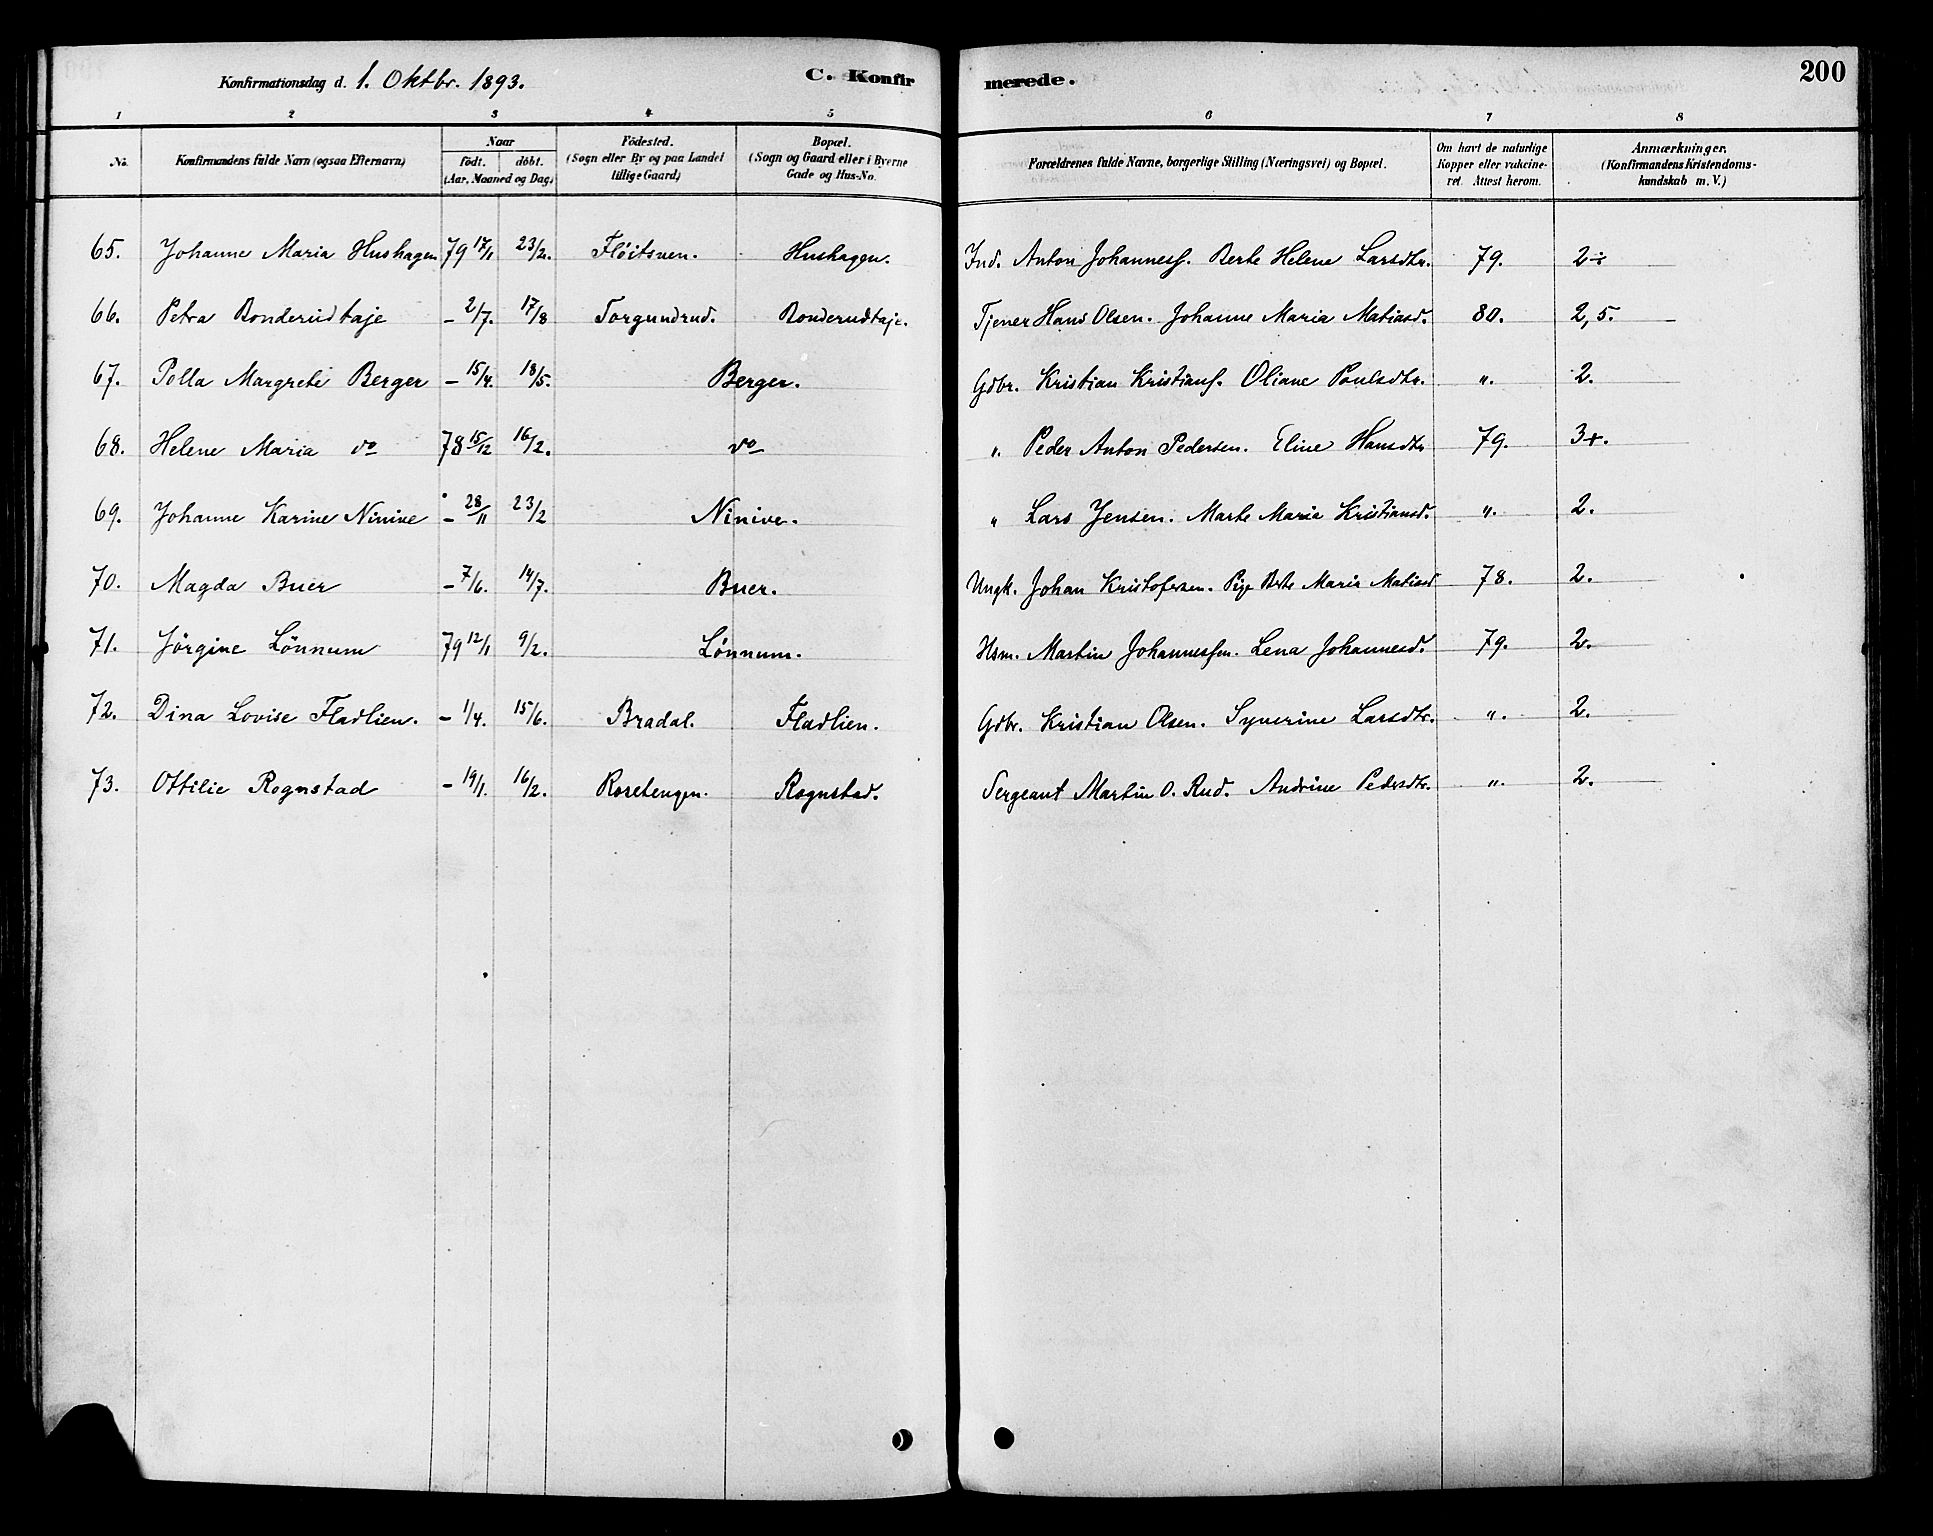 Konfirmationsdag d. 1. Oktbr. 1893. C. Konfirmerede. 200
1 2 3 4 5 6 7 8
No. Konfirmandens fulde Navn (ogsaa Efternavn) Naar födt. döbt. (Aar, Maaned og Dag) Födested. (Sogn eller By og paa Landet tillige Gaard) Bopæl. (Sogn og Gaard eller i Byerne Gade og Hus-No. Forældrenes fulde Navne, borgerlige Stilling (Næringsvei) og Bopæl. Om havt de naturlige Kopper eller vakcineret. Attest herom. Anmærkninger. (Konfirmandens Kristendomskundskab m. V.)
65. Johanne Maria Hushagen 79 17/1 23/2. Flöitsven. Hushagen. Ind. Anton Johannesf. Berte Helene Larsdtr. 79. 2÷
66. Petra Bonderudtaje – 2/7. 17/8 Torgundrud. Bonderudtaje. Tjener Hans Olsen. Johanne Maria Matiasd. 80. 2,5.
67. Polla Margrete Berger – 15/4. 18/5. Berger. Gdbr. Kristian Kristiansf. Oliane Paulsdtr. ". 2.
68. Helene Maria do 78 15/12 16/2. do ". Peder Anton Pedersen. Eline Hansdtr 79. 3+.
69. Johanne Karine Ninive – 28/11 23/2 Ninive. " Lars Jensen. Marte Maria Kristiansd. ". 2.
70. Magda Buer – 7/6. 14/7. Buer. Ungk. Johan Kristofersen. Pige Berte Maria Matiasd 78. 2.
71. Jörgine Lönnum 79 12/1 9/2. Lönnum. Hsm. Martin Johannessen. Lena Johannesd. 79. 2.
72. Dina Lovise Fladlien. – 1/4. 15/6. Bradal. Fladlien. Gdbr. Kristian Olsen. Synerine Larsdtr. ". 2.
73. Ottilie Rognstad – 19/1. 16/2. Rosetengen. Rognstad. Sergeant Martin O. Rud. Andrine Pedersdtr. ". 2.